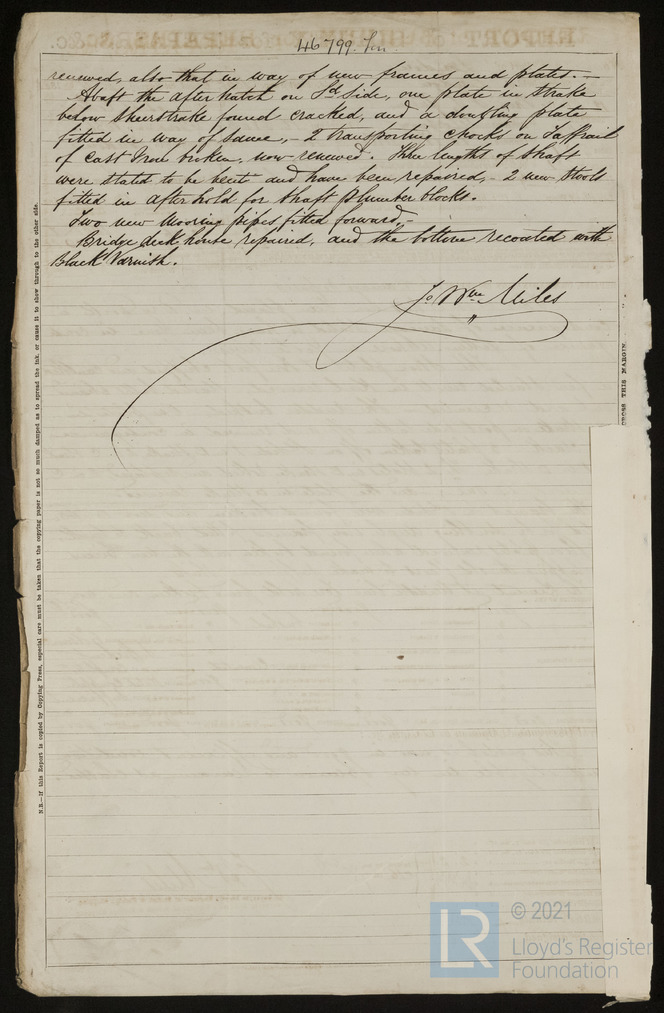 46799. Iron
renewed, also that in way of new frames and plates. —
Abaft the after hatch on Sd side, one plate in strake
below Sheerstrake found cracked, and a doubling plate
fitted in way of same, - 2 transporting chocks on Taffrail
of Cast Iron broken, now renewed. Three lengths of Shaft
were stated to be bent and have been repaired, - 2 new Stools
fitted in after hold for Shaft Plumber blocks.
Two new Mooring pipes fitted forward, -
Bridge deck house repaired, and the bottom recoated with
Black Varnish.
Jo Wm Miles
N.B.—If this Report is copied by Copying Press, especial care must be taken that the copying paper is not so much damped as to spread the ink, or cause it to show through to the other side.
CROSS THIS MARGIN.
LR
© 2021
Lloyd's Register
Foundation